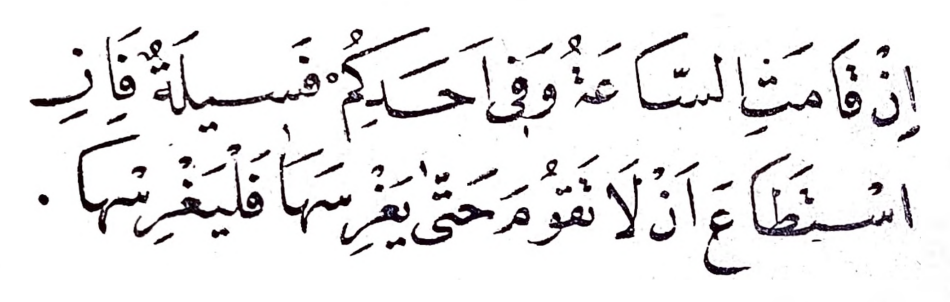 اِنْ قَامَتِ السَّاعَةُ وَفِى اَحَدِكُمْ فَسِيلَةٌ فَاِنِ
اسْتَطَاعَ اَنْ لَا تَقُومَ حَتّٰى يَغْرِسَهَا فَلْيَغْرِسْهَا .